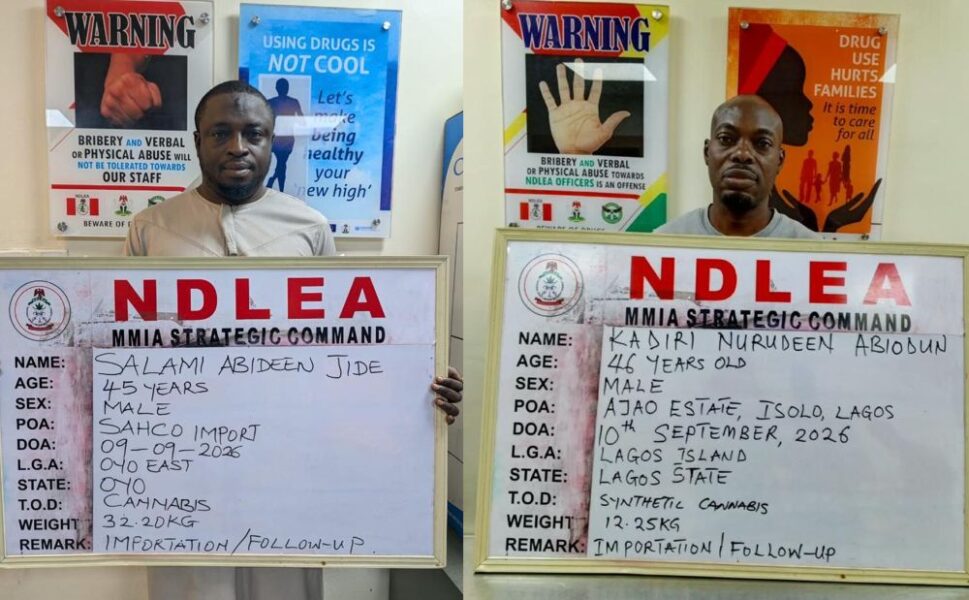 WARNING
BRIBERY AND VERBAL
OR PHYSICAL ABUSE WILL
NOT BE TOLERATED TOWARDS
OUR STAFF
BEWARE OF
USING DRUGS IS
NOT COOL
Let's
make
being
healthy
your
'new high'
NDLEA
MMIA STRATEGIC COMMAND
NAME: SALAMI ABIDEEN JIDE
AGE: 45 YEARS
SEX: MALE
POA: SAHCO IMPORT
DOA: 09-09-2026
L.G.A: OYO EAST
STATE: OYO
T.O.D: CANNABIS
WEIGHT 32.20KG
REMARK: IMPORTATION/FOLLOW-UP
WARNING
BRIBERY AND VERBAL
OR PHYSICAL ABUSE TOWARDS
NDLEA OFFICERS IS AN OFFENSE
DRUG
USE
HURTS
FAMILIES
It is time
to care
for all
NDLEA
MMIA STRATEGIC COMMAND
NAME: KADIRI NURUDEEN ABIODUN
AGE: 46 YEARS OLD
SEX: MALE
POA: AJAO ESTATE, ISOLO, LAGOS
DOA: 10th SEPTEMBER, 2026
L.G.A: LAGOS ISLAND
STATE: LAGOS STATE
T.O.D: SYNTHETIC CANNABIS
WEIGHT 12.25KG
REMARK: IMPORTATION/FOLLOW-UP